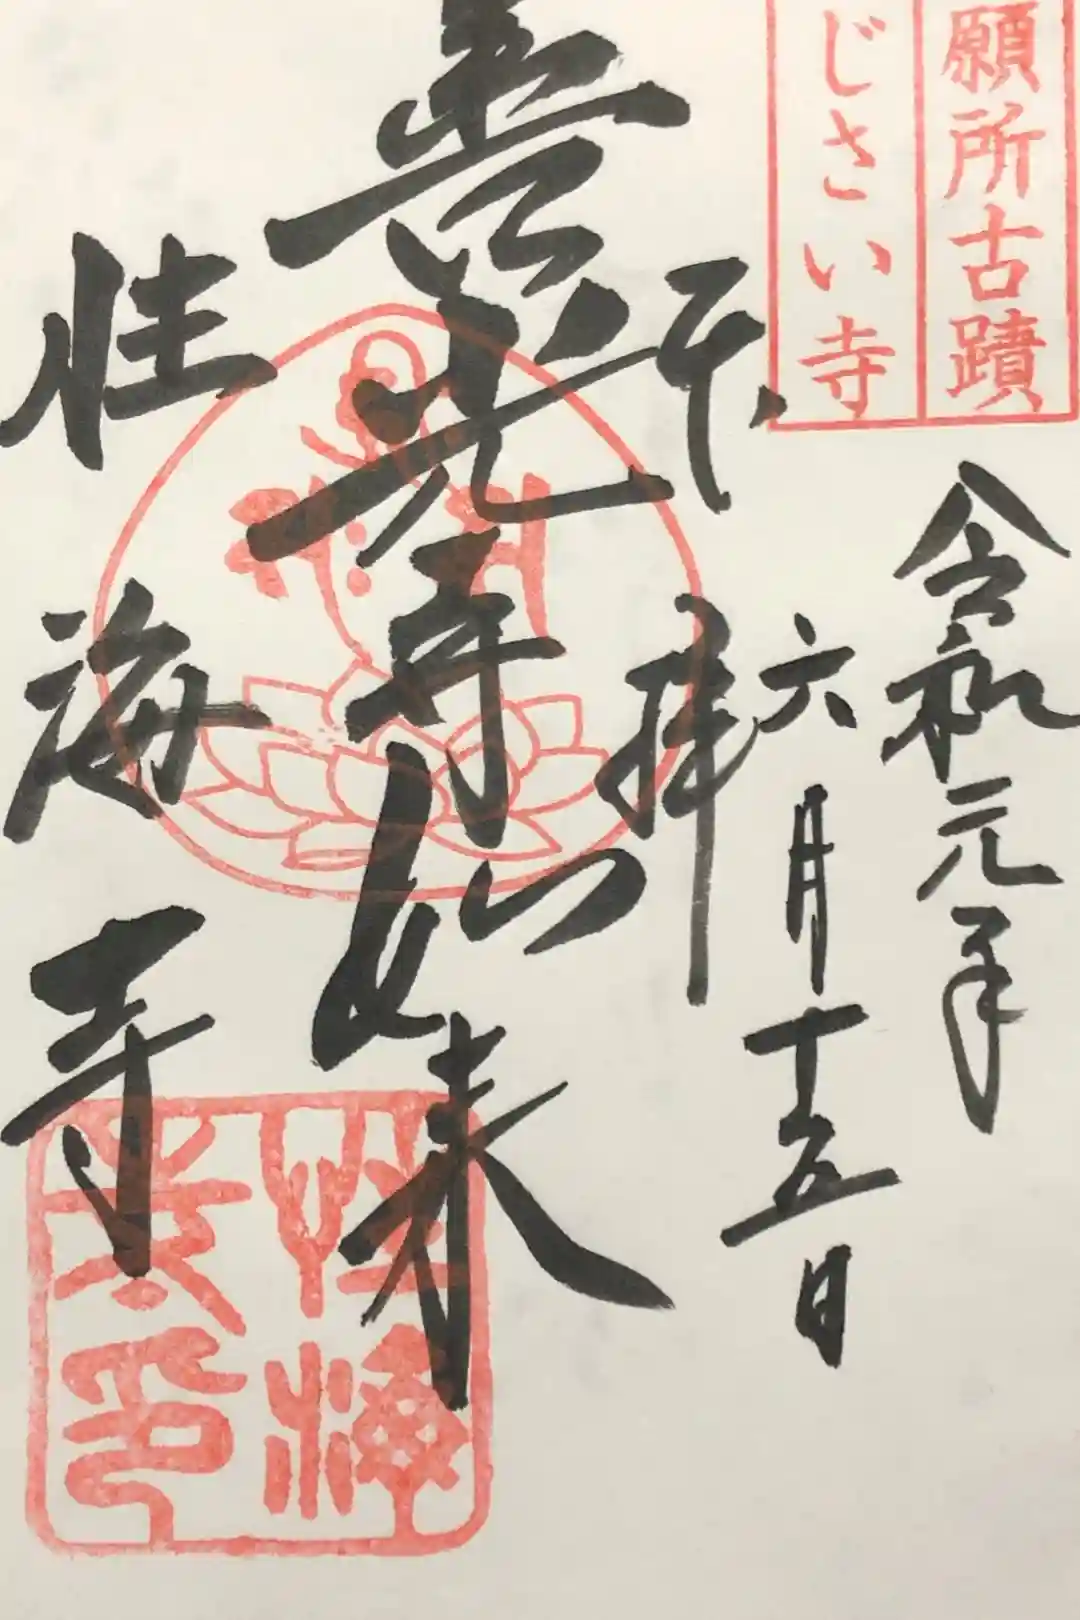 願所古蹟
じさい寺
令和元年
六月十五日
奉拝
善光寺如来
性海寺